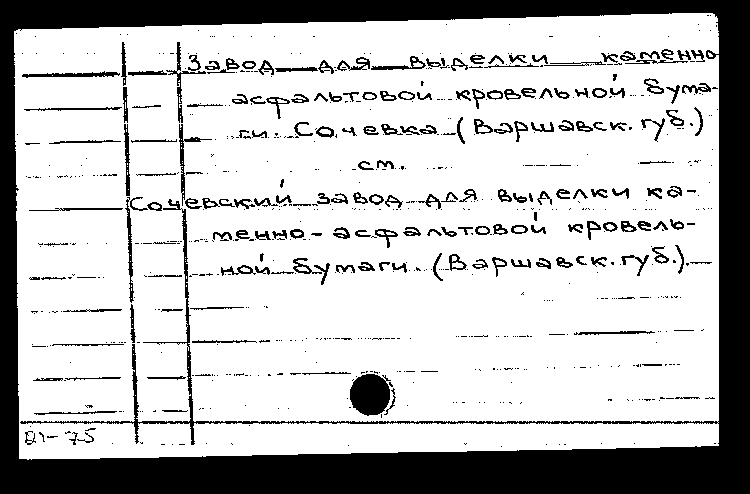 Завод для выделки каменно
асфальтовой кровельной бума-
ги. Сочевка (Варшавск. губ.)
см.
Сочевский завод для выделки ка-
менно-асфальтовой кровель-
ной бумаги. (Варшавск. губ.).